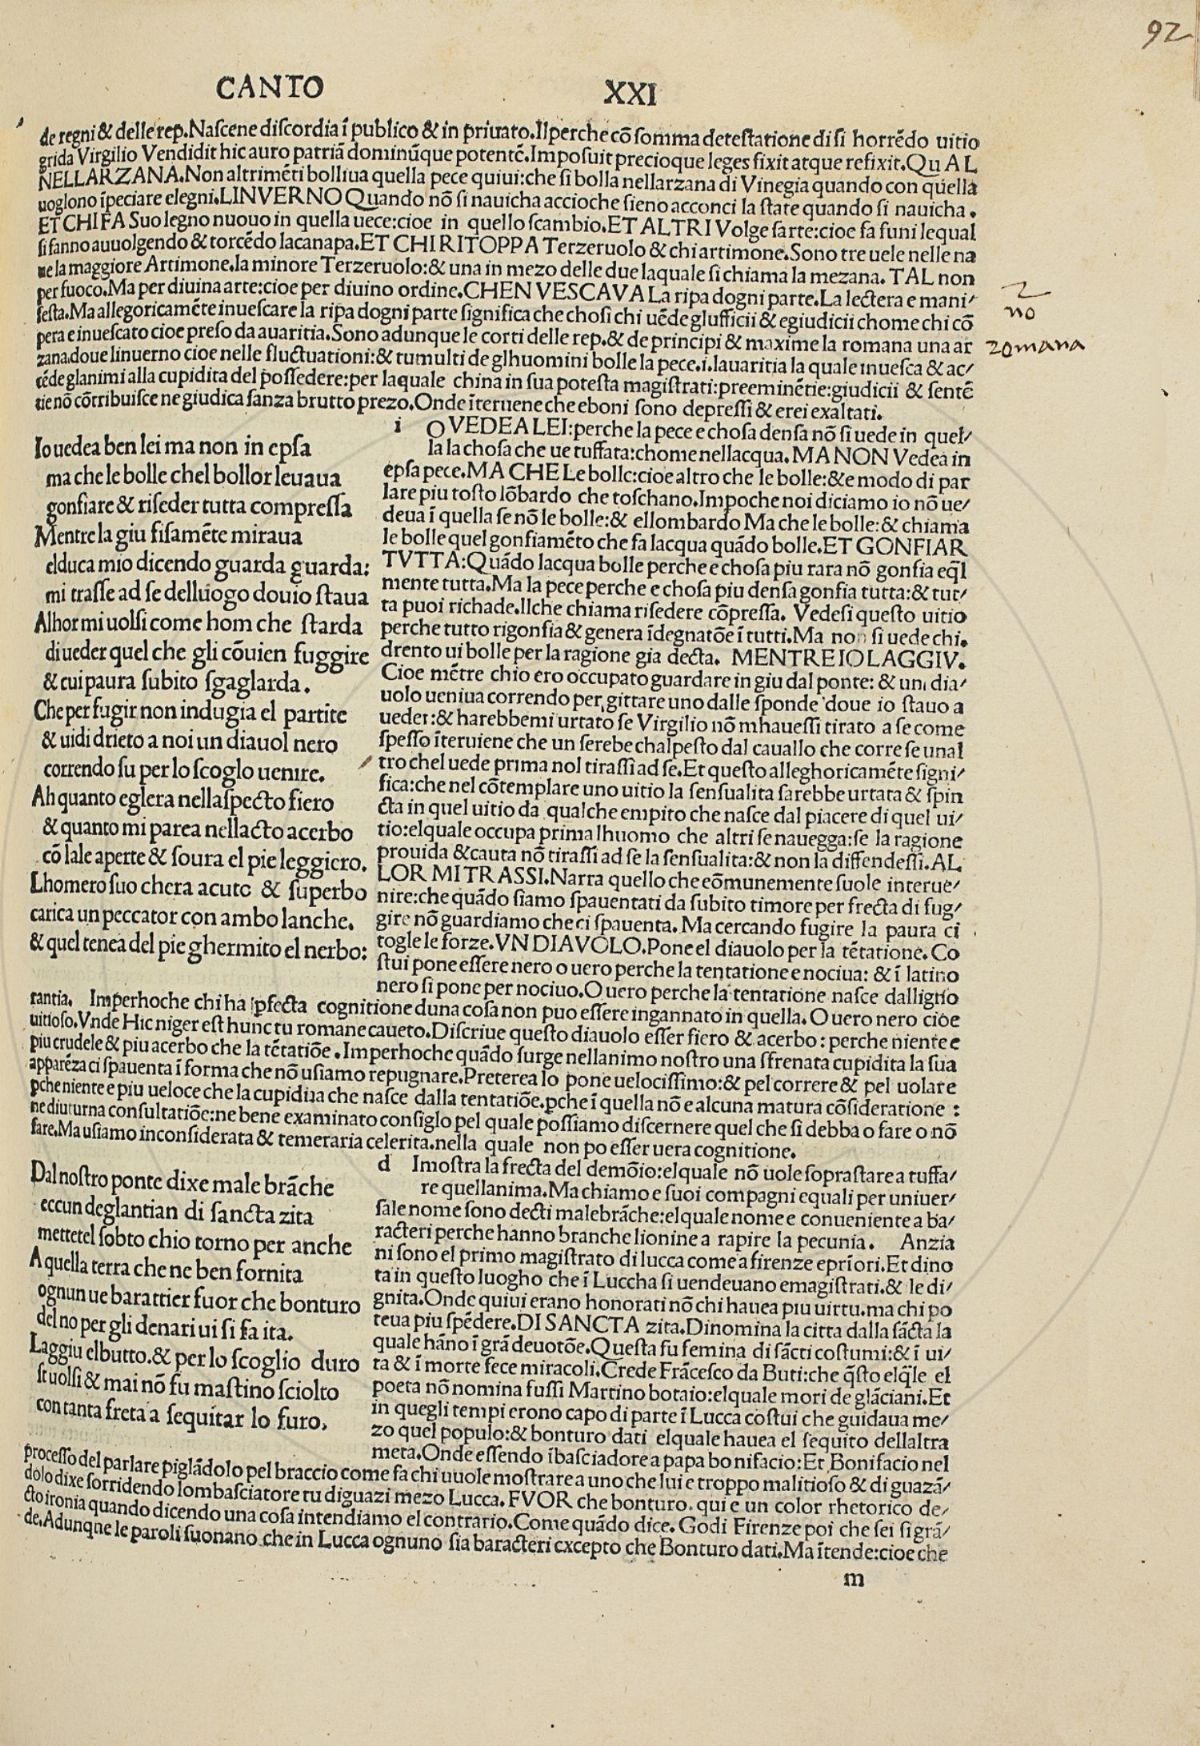 92
CANTO XXI
de regni & delle rep.Naſcene diſcordia ī publico & in priuato.Ilperche cō ſomma deteſtatione di ſi horrēdo uitio
grida Virgilio Vendidit hic auro patriā dominūque potentē.Impoſuit precioque leges fixit atque refixit.QuAL
NELLARZANA.Non altrimēti bolliua quella pece quiui:che ſi bolla nellarzana di Vinegia quando con quella
uoglono īpeciare elegni.LINVERNO Quando nō ſi nauicha accioche ſieno acconci la ſtate quando ſi nauicha.
ET CHI FA Suo legno nuouo in quella uece:cioe in quello ſcambio.ET ALTRI Volge ſarte:cioe fa funi lequal
ſi fanno auuolgendo & torcēdo lacanapa.ET CHI RITOPPA Terzeruolo & chi artimone.Sono tre uele nelle na
ue la maggiore Artimone.la minore Terzeruolo:& una in mezo delle due laquale ſi chiama la mezana. TAL non
per fuoco.Ma per diuina arte:cioe per diuino ordine.CHEN VESCAVA La ripa dogni parte.La lectera e mani/
feſta.Ma allegoricamēte inueſcare la ripa dogni parte ſignifica che choſi chi uēde glufficii & egiudicii chome chi cō
2
no
pera e inueſcato cioe preſo da auaritia.Sono adunque le corti delle rep.& de principi & maxime la romana una ar
romana
zana.doue linuerno cioe nelle fluctuationi:& tumulti de glhuomini bolle la pece.i.lauaritia la quale inueſca & ac/
cēde glanimi alla cupidita del poſſedere:per laquale china in ſua poteſta magiſtrati:preeminētie:giudicii & ſentē
tie nō cōtribuiſce ne giudica ſanza brutto prezo.Onde īteruene che eboni ſono depreſſi & erei exaltati.
Io uedea ben lei ma non in epſa
ma che le bolle chel bollor leuaua
gonfiare & riſeder tutta compreſſa
Mentre la giu fiſamēte miraua
elduca mio dicendo guarda guarda:
mi traſſe ad ſe delluogo douio ſtaua
Alhor mi uolſi come hom che ſtarda
di ueder quel che gli cōuien fuggire
& cui paura ſubito ſgaglarda.
Che per fugir non indugia el partite
& uidi drieto a noi un diauol nero
correndo ſu per lo ſcoglo uenire.
Ah quanto eglera nellaſpecto fiero
& quanto mi parea nellacto acerbo
cō lale aperte & ſoura el pie leggiero.
Lhomero ſuo chera acuto & ſuperbo
carica un peccator con ambo lanche.
& quel tenea del pie ghermito el nerbo:
i OVEDEA LEI:perche la pece e choſa denſa nō ſi uede in quel/
la la choſa che ue tuffata:chome nellacqua.MA NON Vedea in
epſa pece.MA CHE Le bolle:cioe altro che le bolle:& e modo di par
lare piu toſto lōbardo che toſchano.Impoche noi diciamo io nō ue/
deua ī quella ſe nō le bolle:& ellombardo Ma che le bolle:& chiama
le bolle quel gonfiamēto che fa lacqua quādo bolle.ET GONFIAR
TVTTA:Quādo lacqua bolle perche e choſa piu rara nō gonfia eq̄l
mente tutta.Ma la pece perche e choſa piu denſa gonfia tutta:& tut/
ta puoi richade.Ilche chiama riſedere cōpreſſa. Vedeſi queſto uitio
perche tutto rigonfia & genera īdegnatōe ī tutti.Ma non ſi uede chi.
drento ui bolle per la ragione gia decta. MENTRE IO LAGGIV.
Cioe mētre chio ero occupato guardare in giu dal ponte: & un dia/
uolo ueniua correndo per gittare uno dalle ſponde doue io ſtauo a
ueder:& harebbemi urtato ſe Virgilio nō mhaueſſi tirato a ſe come
ſpeſſo īteruiene che un ſerebe chalpeſto dal cauallo che corre ſe unal
tro chel uede prima nol tiraſſi ad ſe.Et queſto alleghoricamēte ſigni/
fica:che nel cōtemplare uno uitio la ſenſualita ſarebbe urtata & ſpin
cta in quel uitio da qualche empito che naſce dal piacere di quel ui/
tio:elquale occupa prima lhuomo che altri ſe nauegga:ſe la ragione
prouida & cauta nō tiraſſi ad ſe la ſenſualita:& non la diffendeſſi.AL
LOR MI TRASSI.Narra quello che cōmunemente ſuole interue/
nire:che quādo ſiamo ſpauentati da ſubito timore per frecta di fug/
gire nō guardiamo che ci ſpauenta. Ma cercando fugire la paura ci
togle le forze.VN DIAVOLO.Pone el diauolo per la tētatione.Co
ſtui pone eſſere nero o uero perche la tentatione e nociua: & ī latino
nero ſi pone per nociuo.O uero perche la tentatione naſce dalligno
rantia. Imperhoche chi ha ꝑfecta cognitione duna coſa non puo eſſere ingannato in quella. O uero nero cioe
uitioſo.Vnde Hic niger eſt hunc tu romane caueto.Diſcriue queſto diauolo eſſer fiero & acerbo: perche niente e
piu crudele & piu acerbo che la tētatiōe. Imperhoche quādo ſurge nellanimo noſtro una ſfrenata cupidita la ſua
apparēza ci ſpauenta ī forma che nō uſiamo repugnare.Preterea lo pone uelociſſimo:& pel correre & pel uolare
ꝑche niente e piu ueloce che la cupidita che naſce dalla tentatiōe.ꝑche ī quella nō e alcuna matura cōſideratione :
ne diuturna conſultatiōe:ne bene examinato conſiglo pel quale poſſiamo diſcernere quel che ſi debba o fare o nō
fare.Ma uſiamo inconſiderata & temeraria celerita.nella quale non po eſſer uera cognitione.
Dal noſtro ponte dixe male brāche
eccun deglantian di ſancta zita
mettetel ſobto chio torno per anche
A quella terra che ne ben fornita
ognun ue barattier fuor che bonturo
del no per gli denari ui ſi fa ita.
Laggiu elbutto.& per lo ſcoglio duro
ſi uolſi & mai nō fu maſtino ſciolto
con tanta freta a ſequitar lo furo.
d Imoſtra la frecta del demōio:elquale nō uole ſopraſtare a tuffa/
re quellanima.Ma chiamo e ſuoi compagni equali per uniuer/
ſale nome ſono decti malebrāche:elquale nome e conueniente a ba/
racteri perche hanno branche lionine a rapire la pecunia. Anzia
ni ſono el primo magiſtrato di lucca come a firenze epriori.Et dino
ta in queſto luogho che ī Luccha ſi uendeuano emagiſtrati.& le di/
gnita.Onde quiui erano honorati nō chi hauea piu uirtu.ma chi po
teua piu ſpēdere.DI SANCTA zita.Dinomina la citta dalla ſācta la
quale hāno ī grā deuotōe.Queſta fu femina di ſācti coſtumi:& ī ui/
ta & ī morte fece miracoli.Crede Frāceſco da Buti:che q̄ſto elq̄le el
poeta nō nomina fuſſi Martino botaio:elquale mori de glāciani.Et
in quegli tempi erono capo di parte ī Lucca coſtui che guidaua me/
zo quel populo:& bonturo dati elquale hauea el ſequito dellaltra
meta.Onde eſſendo ībaſciadore a papa bonifacio:Et Bonifacio nel
proceſſo del parlare piglādolo pel braccio come fa chi uuole moſtrare a uno che lui e troppo malitioſo & di guazā/
dolo dixe ſorridendo lombaſciatore tu diguazi mezo Lucca. FVOR che bonturo. qui e un color rhetorico de/
cto ironia quando dicendo una coſa intendiamo el contrario.Come quādo dice. Godi Firenze poi che ſei ſi grā/
de.Adunque le paroli ſuonano che in Lucca ognuno ſia baracteri excepto che Bonturo dati.Ma ītende:cioe che
m